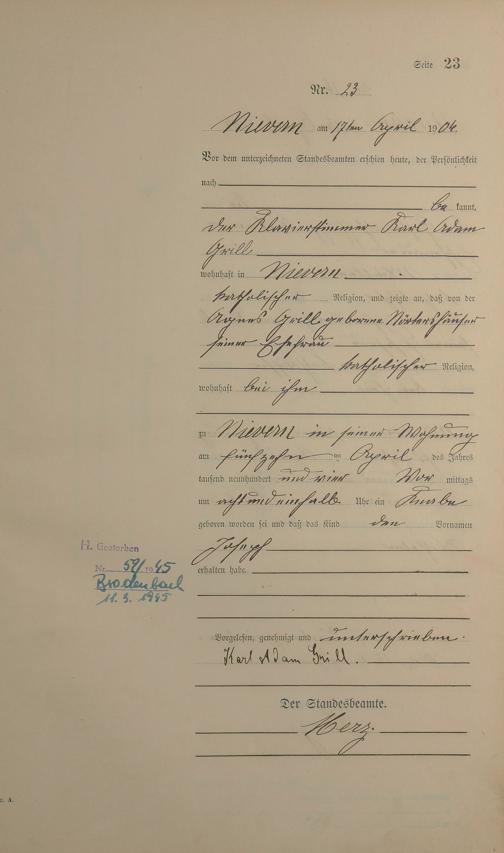 Seite 23
Nr. 23
Nievern am 17ten April 1904.
Vor dem unterzeichneten Standesbeamten erschien heute, der Persönlichkeit
nach
be kannt,
der Klavierstimmer Karl Adam
Grill
wohnhaft in Nievern
katholischer Religion, und zeigte an, daß von der
Agnes Grill geborene Nörtershäuser
seiner Ehefrau
katholischer Religion,
wohnhaft bei ihm
zu Nievern in seiner Wohnung
am fünfzehn April des Jahres
tausend neunhundert und vier Vor mittags
um acht und einhalb Uhr ein Knabe
geboren worden sei und daß das Kind den Vornamen
Joseph
erhalten habe.
H. Gestorben
Nr. 59/1945
Brodenbach
11.3.1945
Vorgelesen, genehmigt und unterschrieben.
Karl Adam Grill.
Der Standesbeamte.
Merz.